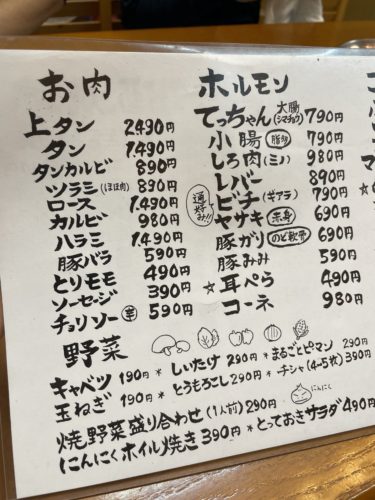 お肉
上タン 2,490円
タン 1,490円
タンカルビ 890円
ツラミ(ほほ肉) 890円
ロース 1,490円
カルビ 980円
ハラミ 1,490円
豚バラ 590円
とりモモ 490円
ソーセージ 390円
チョリソー 辛 590円
ホルモン
てっちゃん 大腸(シマチョウ) 790円
小腸 脂部 790円
しろ肉(ミノ) 980円
レバー 890円
通好み!!
ビチ(ギアラ) 790円
ヤサキ 赤身 690円
豚ガリ のど軟骨 690円
豚みみ 590円
☆耳ぺら 490円
コーネ 980円
野菜
キャベツ 190円 * しいたけ 290円 * まるごとピマン 290円
玉ねぎ 190円 * とうもろこし 290円 * チシャ(4~5枚) 390円
焼野菜盛り合わせ(1人前) 290円 にんにく
にんにくホイル焼き 390円 * とっておきサラダ 490円